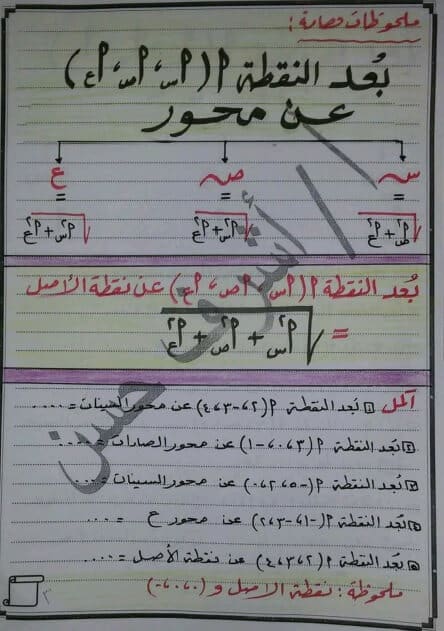 ملحوظات هامة:
بُعد النقطة أ (أس، أص، أع)
عن محور
س ص ع
= = =
√أ²ص + أ²ع √أ²س + أ²ع √أ²س + أ²ص
بُعد النقطة أ (أس، أص، أع) عن نقطة الأصل
= √أ²س + أ²ص + أ²ع
أكمل
١ بُعد النقطة أ (٢، -٣، ٤) عن محور العينات = ....
٢ بُعد النقطة أ (٣، ٠، -١) عن محور الصادات = ....
٣ بُعد النقطة أ (-٥، ٢، ٠) عن محور السينات = ...
٤ بُعد النقطة أ (-١، -٣، ٢) عن محور ع = ...
٥ بُعد النقطة أ (٢، ٣، ٤) عن نقطة الأصل = ...
ملحوظة: نقطة الأصل و (٠، ٠، ٠)
٣
أ/ أشرف حسن